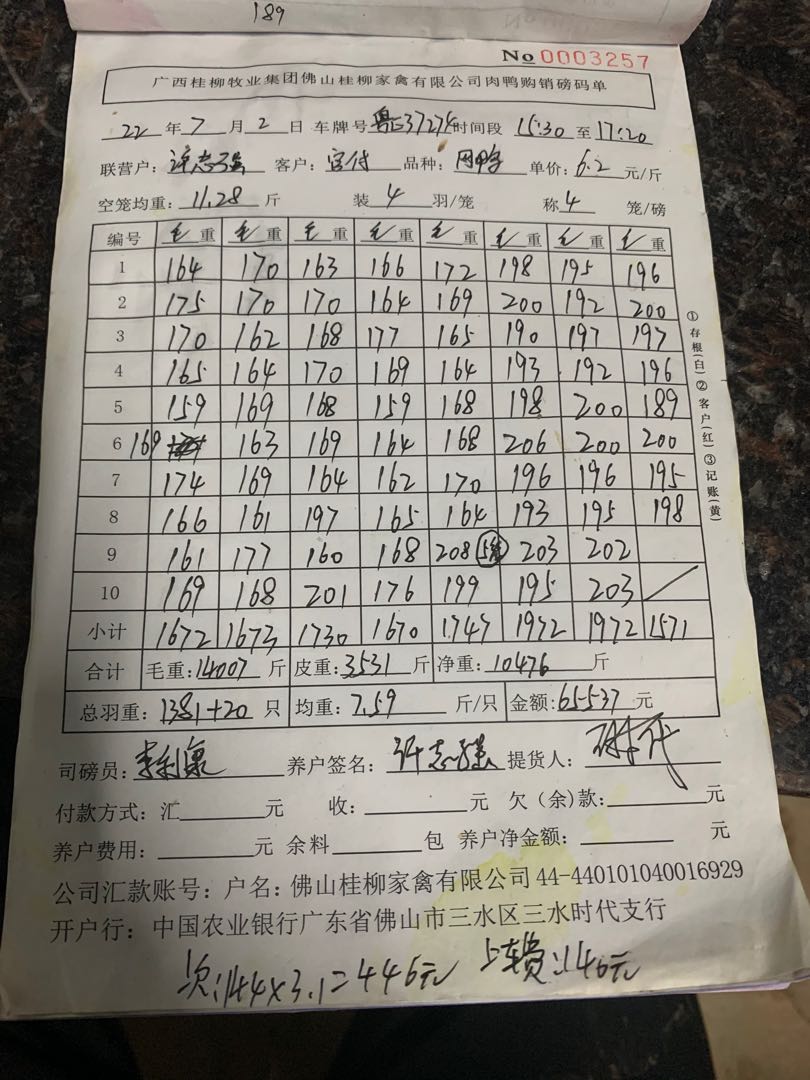 189
No 0003257
广西桂柳牧业集团佛山桂柳家禽有限公司肉鸭购销磅码单
22 年 7 月 2 日 车牌号 37274 时间段 15:30 至 17:20
联营户: 许志强 客户: 官付 品种: 单价: 6.2 元/斤
空笼均重: 11.28 斤 装 4 羽/笼 称 4 笼/磅
编号 毛重 毛重 毛重 毛重 毛重 毛重 毛重 毛重
1 164 170 163 166 172 198 195 196
2 175 170 170 164 169 200 192 200
3 170 162 168 177 165 190 197 197
4 165 164 170 169 164 193 192 196
5 159 169 168 159 168 198 200 189
6 169 163 169 164 168 206 200 200
7 174 169 164 162 170 196 196 195
8 166 161 197 165 164 193 195 198
9 161 177 160 168 208 203 202
10 169 168 201 176 199 195 203 /
小计 1672 1673 1730 1670 1747 1972 1972 1571
合计 毛重: 14007 斤 皮重: 3531 斤 净重: 10476 斤
总羽重: 1381+20 只 均重: 7.59 斤/只 金额: 65537 元
①存根(白)②客户(红)③记账(黄)
司磅员: 李利康 养户签名: 许志强 提货人:
付款方式: 汇 元 收: 元 欠(余)款: 元
养户费用: 元 余料 包 养户净金额: 元
公司汇款账号: 户名: 佛山桂柳家禽有限公司 44-440101040016929
开户行: 中国农业银行广东省佛山市三水区三水时代支行
次:144×3.1=446元 上车费:146元